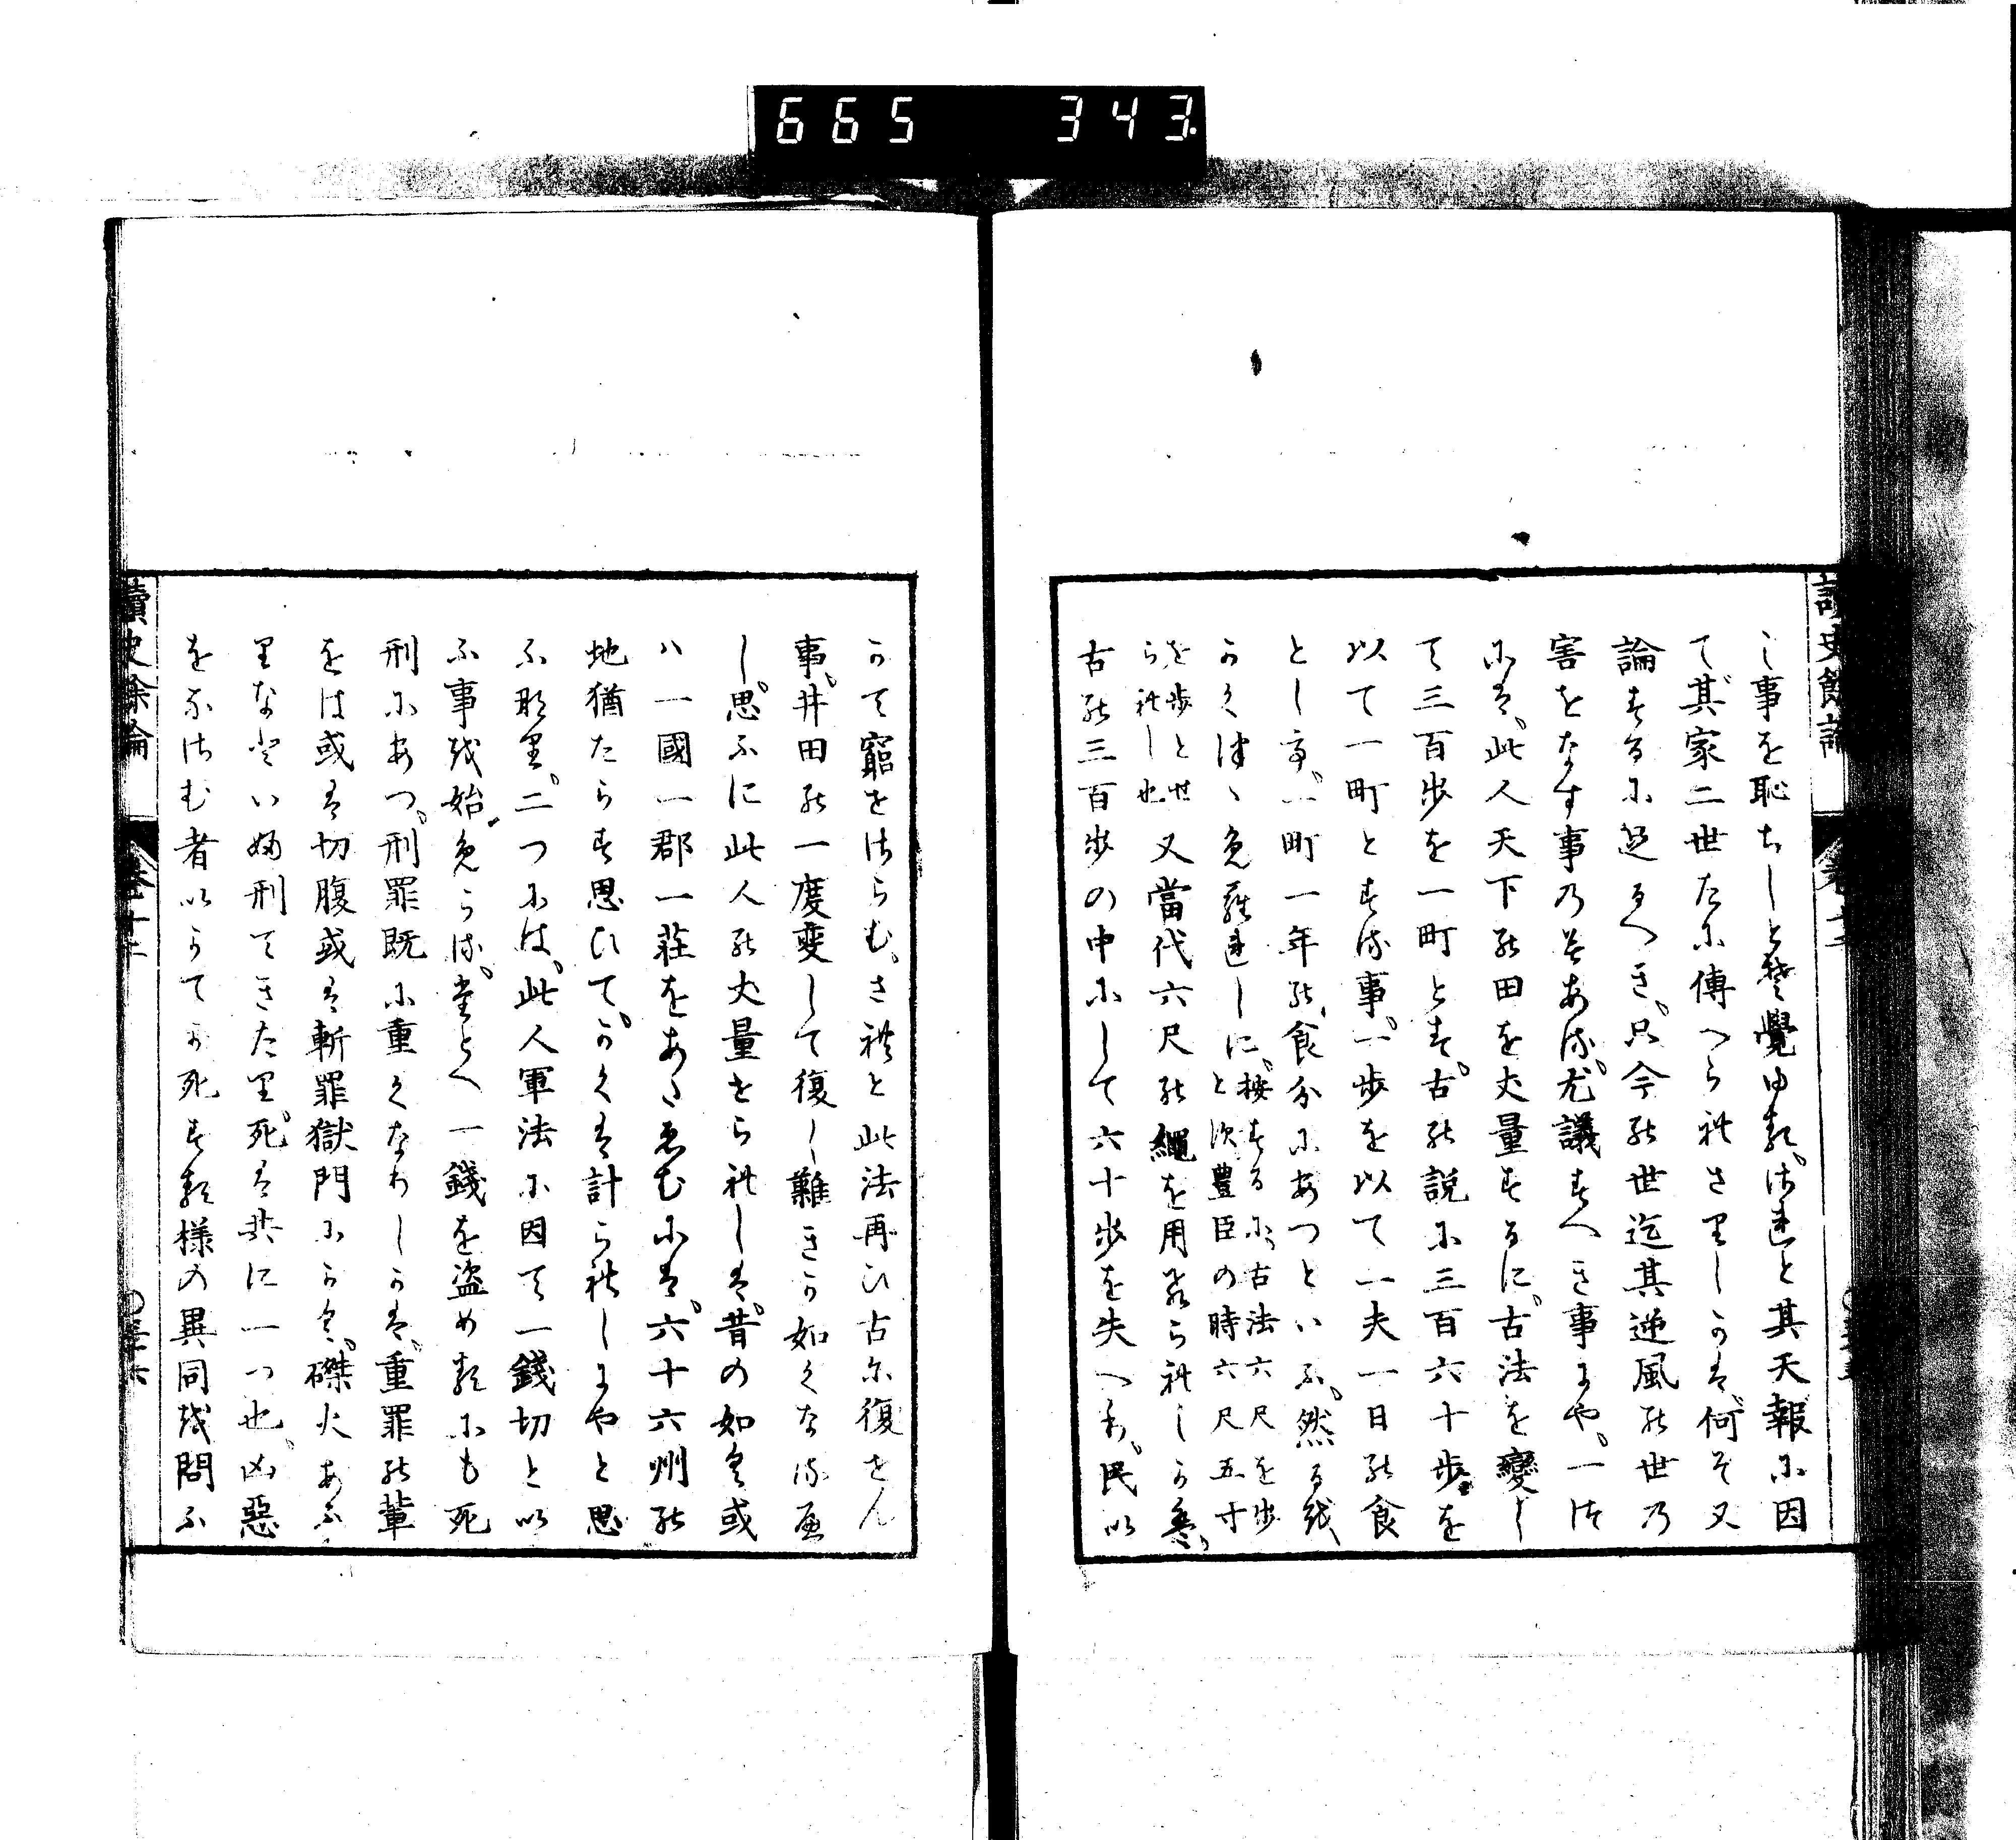 665 343.
讀史餘論
し事を恥ちしとそ覺ゆる。されと其天報に因
て其家二世たに傳へられさりしかは。何そ又
論するに足るへき。只今の世迄其逆風の世の
害をなす事のみある。尤議すへき事にや。一つ
には。此人天下の田を丈量するに。古法を變し
て三百歩を一町とす。古の説に三百六十歩を
以て一町とする事。一歩を以て一夫一日の食
とし〻。一町一年の食分にあつといふ。然るを
かくつゝめられしに。按するに、古法六尺を歩
と次豊臣の時六尺五寸
を歩と世
られし也
又當代六尺の繩を用ひられしかは、
古の三百歩の中にして六十歩を失へり。民い
かて窮せさらむ、されと此法再ひ古に復せん
事、井田の一度変して復し難きか如くなるへ
し。思ふに此人の丈量せられしは。昔の如く或
ハ一國一郡一荘をあたゑむには。六十六州の
地猶たらす思ひて。かくは計られしにやと思
ふ那里。二つには。此人軍法に因て一錢切とい
ふ事を始めらる。堂とへ一錢を盗めるにも死
刑にあつ。刑罪既に重くなりしかは。重罪の輩
をは或は切腹或は斬罪獄門にかく。磔火あふ
りなといふ刑てきたり。死は共に一つ也。凶惡
をなさむ者いかてか死する様の異同を問ふ
讀史餘論
卷十二